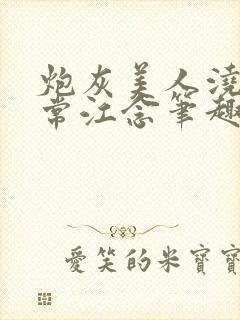 炮灰美人澆
常江念筆趣
愛笑的米寶寶